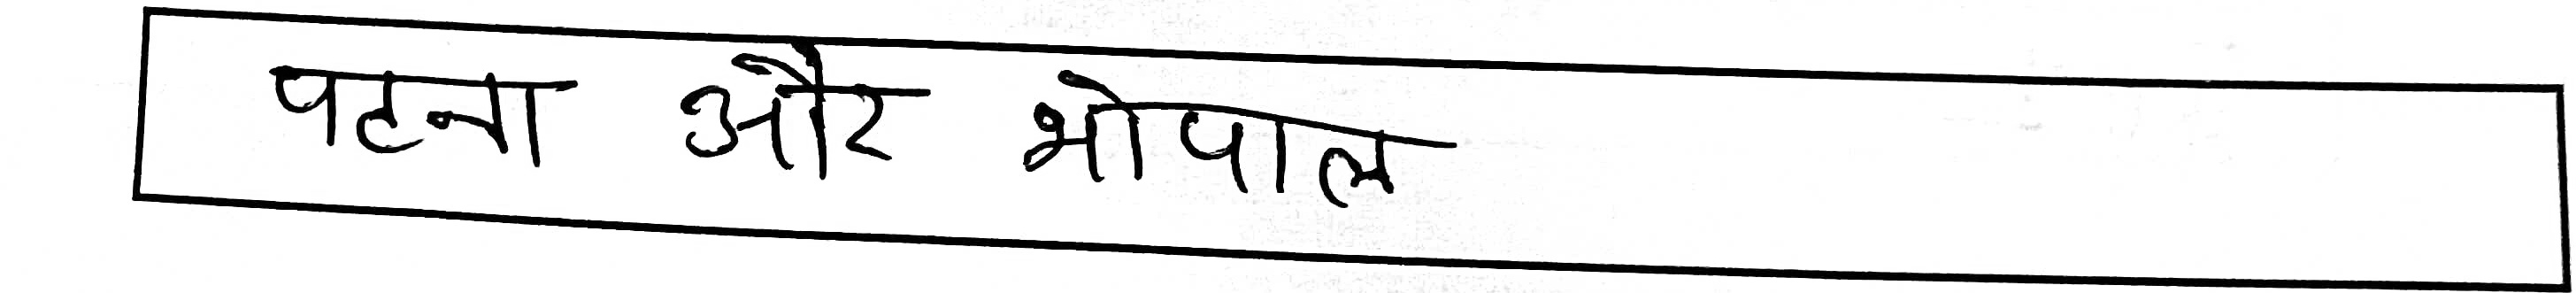 पटना और भोपाल